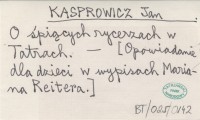 KASPROWICZ Jan.
O śpiących rycerzach w
Tatrach. — [Opowiadanie
dla dzieci w wypisach Maria-
na Reitera.]